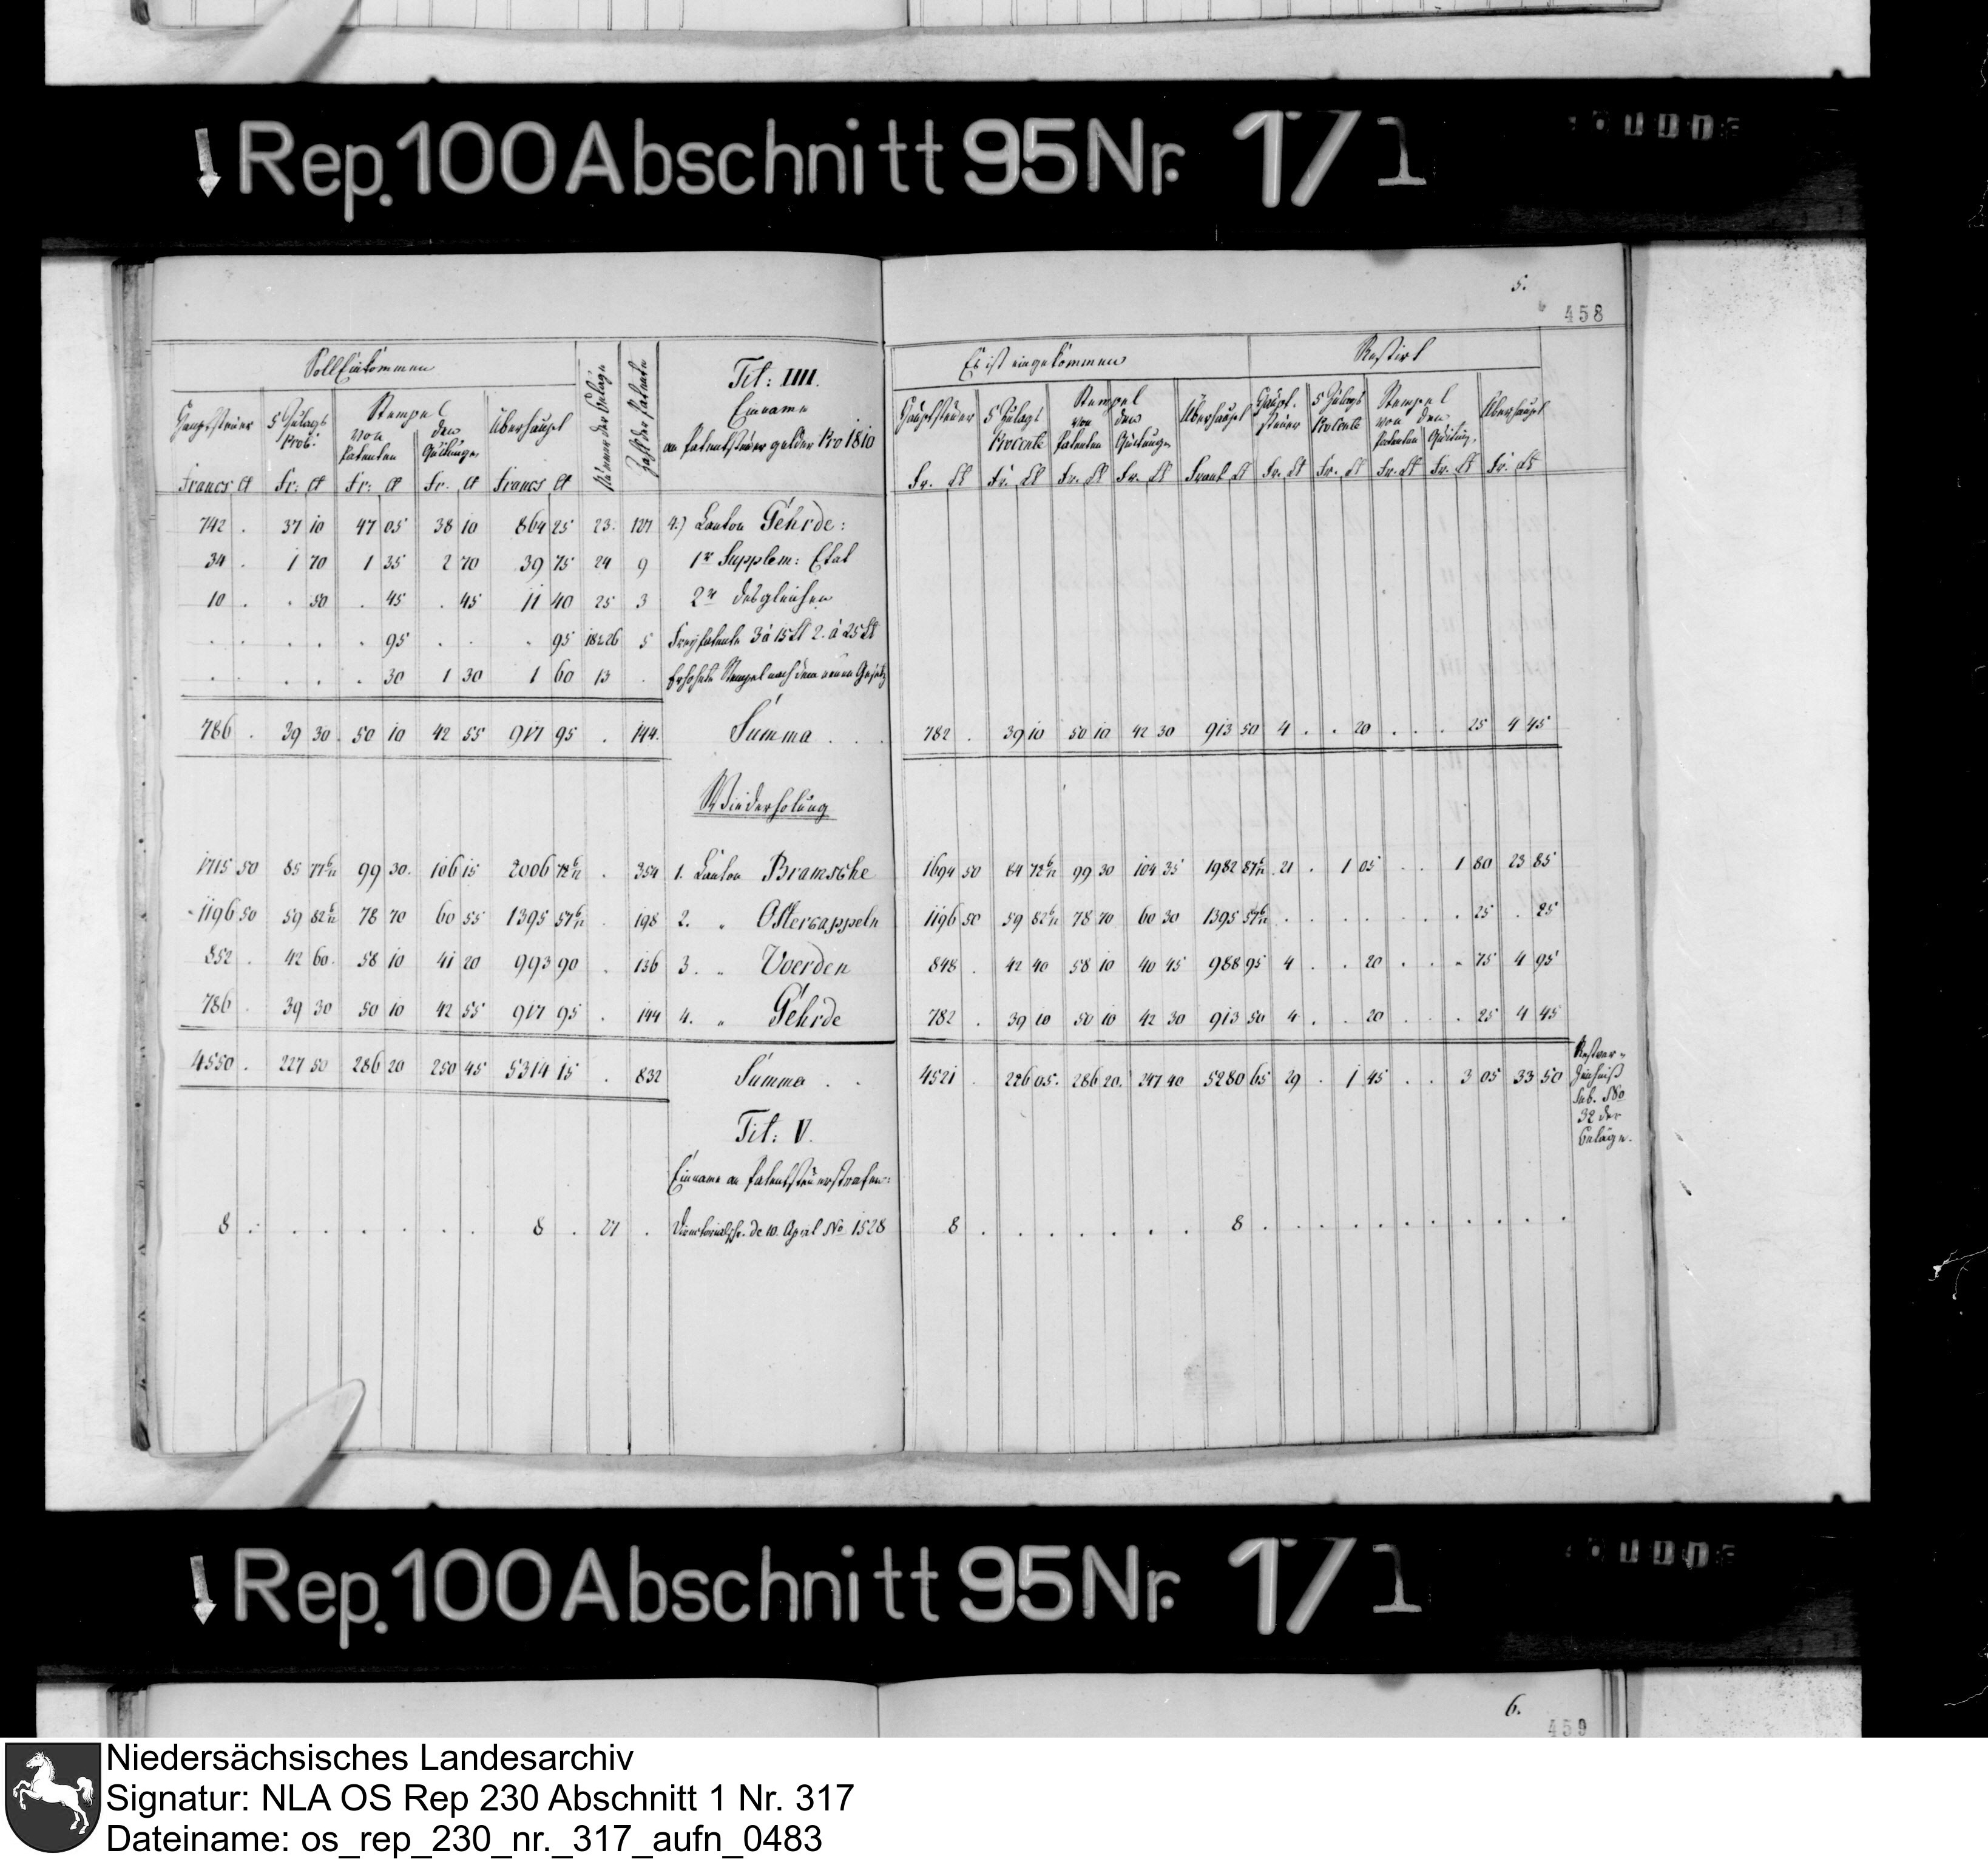 Rep. 100 Abschnitt 95 Nr. 1/1
5.
458
Soll Einkommen
Hauptsteuer 5 Zulags Proc: Stempel von Patenten den Quitungen Überhaupt
Numer der Beläge
Zahl der Patente
Francs Ct Fr: Ct Fr: Ct Fr. Ct Francs Ct
Tit: IIII.
Einname
an Patentsteuer gelder Pro 1810
Es ist eingekommen
Hauptsteuer 5 Zulags Procente Stempel von Patenten den Quitungen Überhaupt
Fr. Ct Fr. Ct Fr. Ct Fr. Ct Frank Ct
Restirt
Haupt- steuer 5 Zulags Procente Stempel von Patenten den Quitung. Überhaupt
Fr. Ct Fr. Ct Fr. Ct Fr. Ct Fr. Ct
742 . 37 10 47 05 38 10 864 25 23. 127 4.) Canton Gehrde:
34 . 1 70 1 35 2 70 39 75 24 9 1r Supplem: Etat
10 . . 50 . 45 . 45 11 40 25 3 2r desgleichen
. . . . . 95 . . . 95 18 & 26 5 Freypatente 3 à 15 Ct 2. à 25 Ct
. . . . . 30 1 30 1 60 13 . Erhöhete Stempel nach dem neuen Gesetz
786 . 39 30. 50 10 42 55 917 95 . 144. Summa . . . 782 . 39 10 50 10 42 30 913 50 4 . . 20 . . . 25 4 45
Wiederholung
1715 50 85 77 6/12 99 30. 106 15 2006 72 6/12 . 354 1. Canton Bramsche 1694 50 84 72 6/12 99 30 104 35 1982 87 6/12 21 . 1 05 . . 1 80 23 85
1196 50 59 82 6/12 78 70 60 55 1395 57 6/12 . 198 2. " Ostercappeln 1196 50 59 82 6/12 78 70 60 30 1395 57 6/12 . . . . . . . 25 . 25
852 . 42 60. 58 10 41 20 993 90 . 136 3. " Voerden 848 . 42 40 58 10 40 45 988 95 4 . . 20 . . . 75 4 95
786 . 39 30 50 10 42 55 917 95 . 144 4. " Gehrde 782 . 39 10 50 10 42 30 913 50 4 . . 20 . . . 25 4 45
4550 . 227 50 286 20 250 45 5314 15 . 832 Summa . . 4521 . 226 05. 286 20. 247 40 5280 65 29 . 1 45 . . 3 05 33 50
Restver-
zeichniß
sub. No
32 der
Beläge.
Tit: V.
Einname an Patentsteuerstrafen:
8 . . . . . . . . 8 . 27 . de 10. April No 1528 8 . . . . . . . 8 . . . . . . . . . . .
Rep. 100 Abschnitt 95 Nr. 1/1
6.
459
Niedersächsisches Landesarchiv
Signatur: NLA OS Rep 230 Abschnitt 1 Nr. 317
Dateiname: os_rep_230_nr._317_aufn_0483